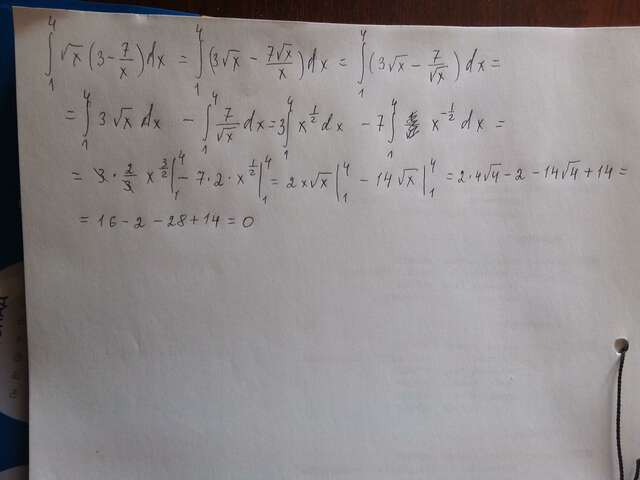 ∫₁⁴ √x (3 - 7/x) dx = ∫₁⁴ (3√x - 7√x/x) dx = ∫₁⁴ (3√x - 7/√x) dx =
= ∫₁⁴ 3√x dx - ∫₁⁴ 7/√x dx = 3∫₁⁴ x^(1/2) dx - 7∫₁⁴ x^(-1/2) dx =
= 3 · 2/3 x^(3/2) |₁⁴ - 7 · 2 · x^(1/2) |₁⁴ = 2x√x |₁⁴ - 14√x |₁⁴ = 2·4√4 - 2 - 14√4 + 14 =
= 16 - 2 - 28 + 14 = 0